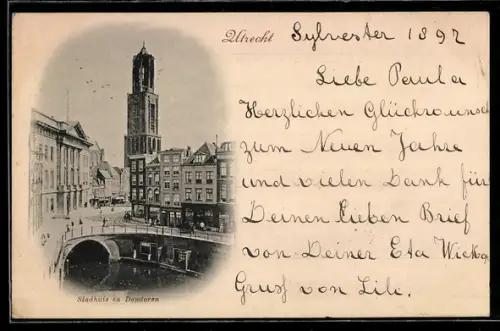 Utrecht
Sylvester 1897
Liebe Paula
Herzlichen Glückwunsch
zum Neuen Jahre
und vielen Dank für
Deinen lieben Brief
von Deiner Eta
Gruss von Lili.
Stadhuis en Domtoren